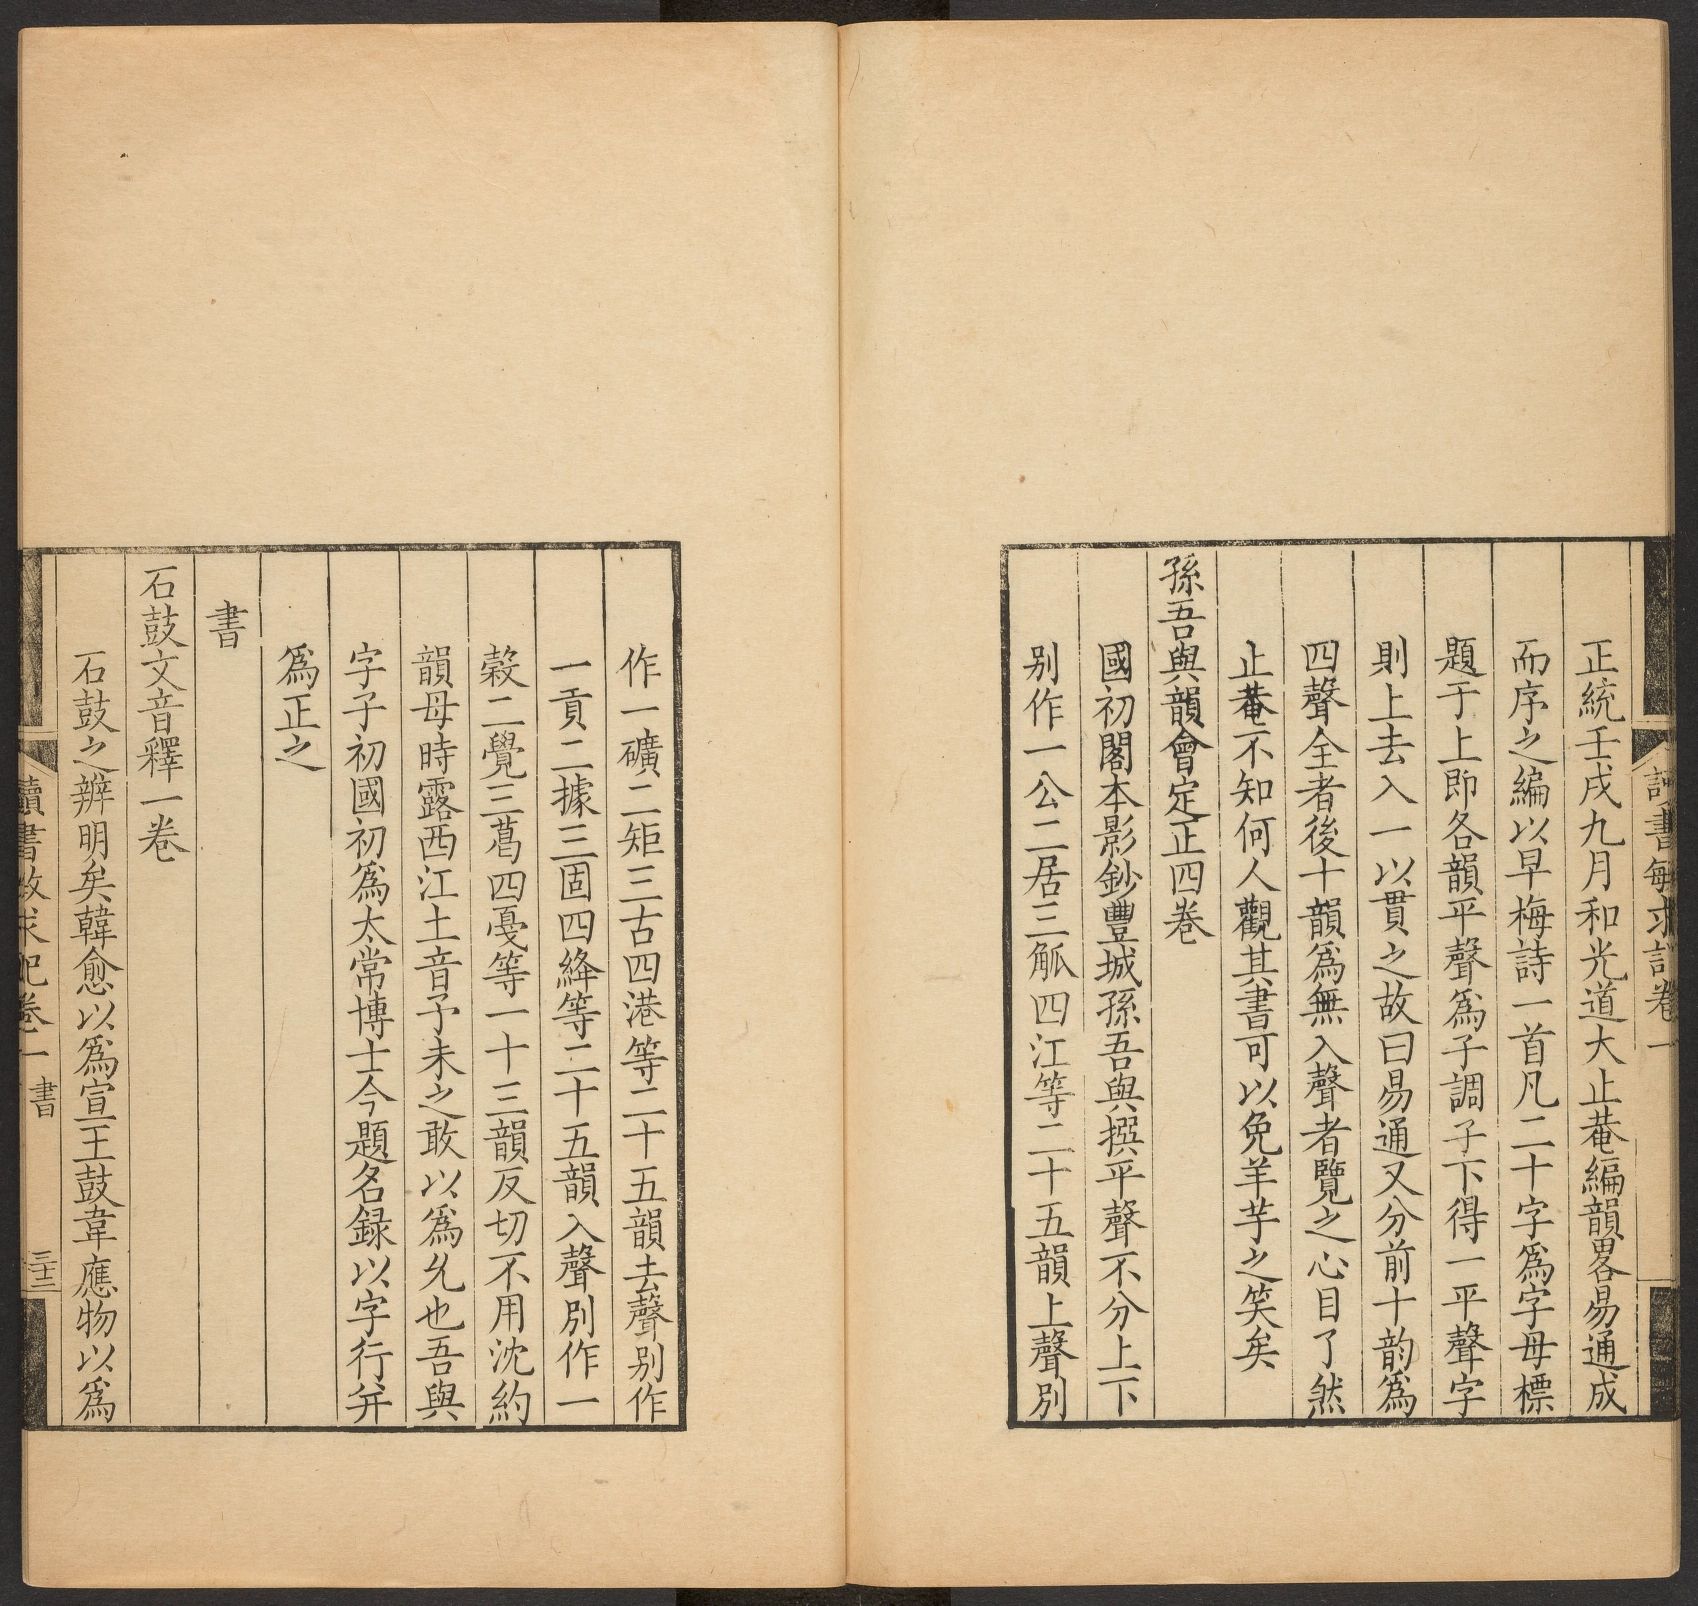 正統壬戌九月和光道大止菴編韻畧易通成
而序之編以早梅詩一首凡二十字爲字母標
題于上即各韻平聲爲子調子下得一平聲字
則上去入一以貫之故曰易通又分前十韵爲
四聲全者後十韻爲無入聲者覽之心目了然
止菴不知何人觀其書可以免羊芋之笑矣
孫吾與韻會定正四卷
國初閣本影鈔豐城孫吾與撰平聲不分上下
别作一公二居三觚四江等二十五韻上聲別
作一礦二矩三古四港等二十五韻去聲别作
一貢二據三固四絳等二十五韻入聲別作一
穀二覺三葛四戞等一十三韻反切不用沈約
韻母時露西江土音予未之敢以爲允也吾與
字子初國初爲太常博士今題名録以字行并
爲正之
書
石鼓文音釋一卷
石鼓之辨明矣韓愈以爲宣王鼓韋應物以爲
讀書敏求記卷一 書
三十二